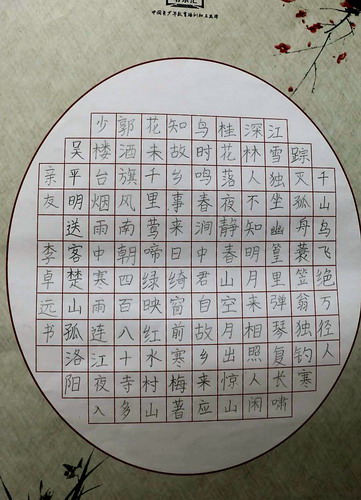 千山鸟飞绝万径人
踪灭孤舟蓑笠翁独钓寒
江雪独坐幽篁里弹琴复长啸
深林人不知明月来相照人闲
桂花落夜静春山空月出惊山
鸟时鸣春涧中君自故乡来应
知故乡事来日绮窗前寒梅著
花未千里莺啼绿映红水村山
郭酒旗风南朝四百八十寺多
少楼台烟雨中寒雨连江夜入
吴平明送客楚山孤洛阳
亲友 李卓远书